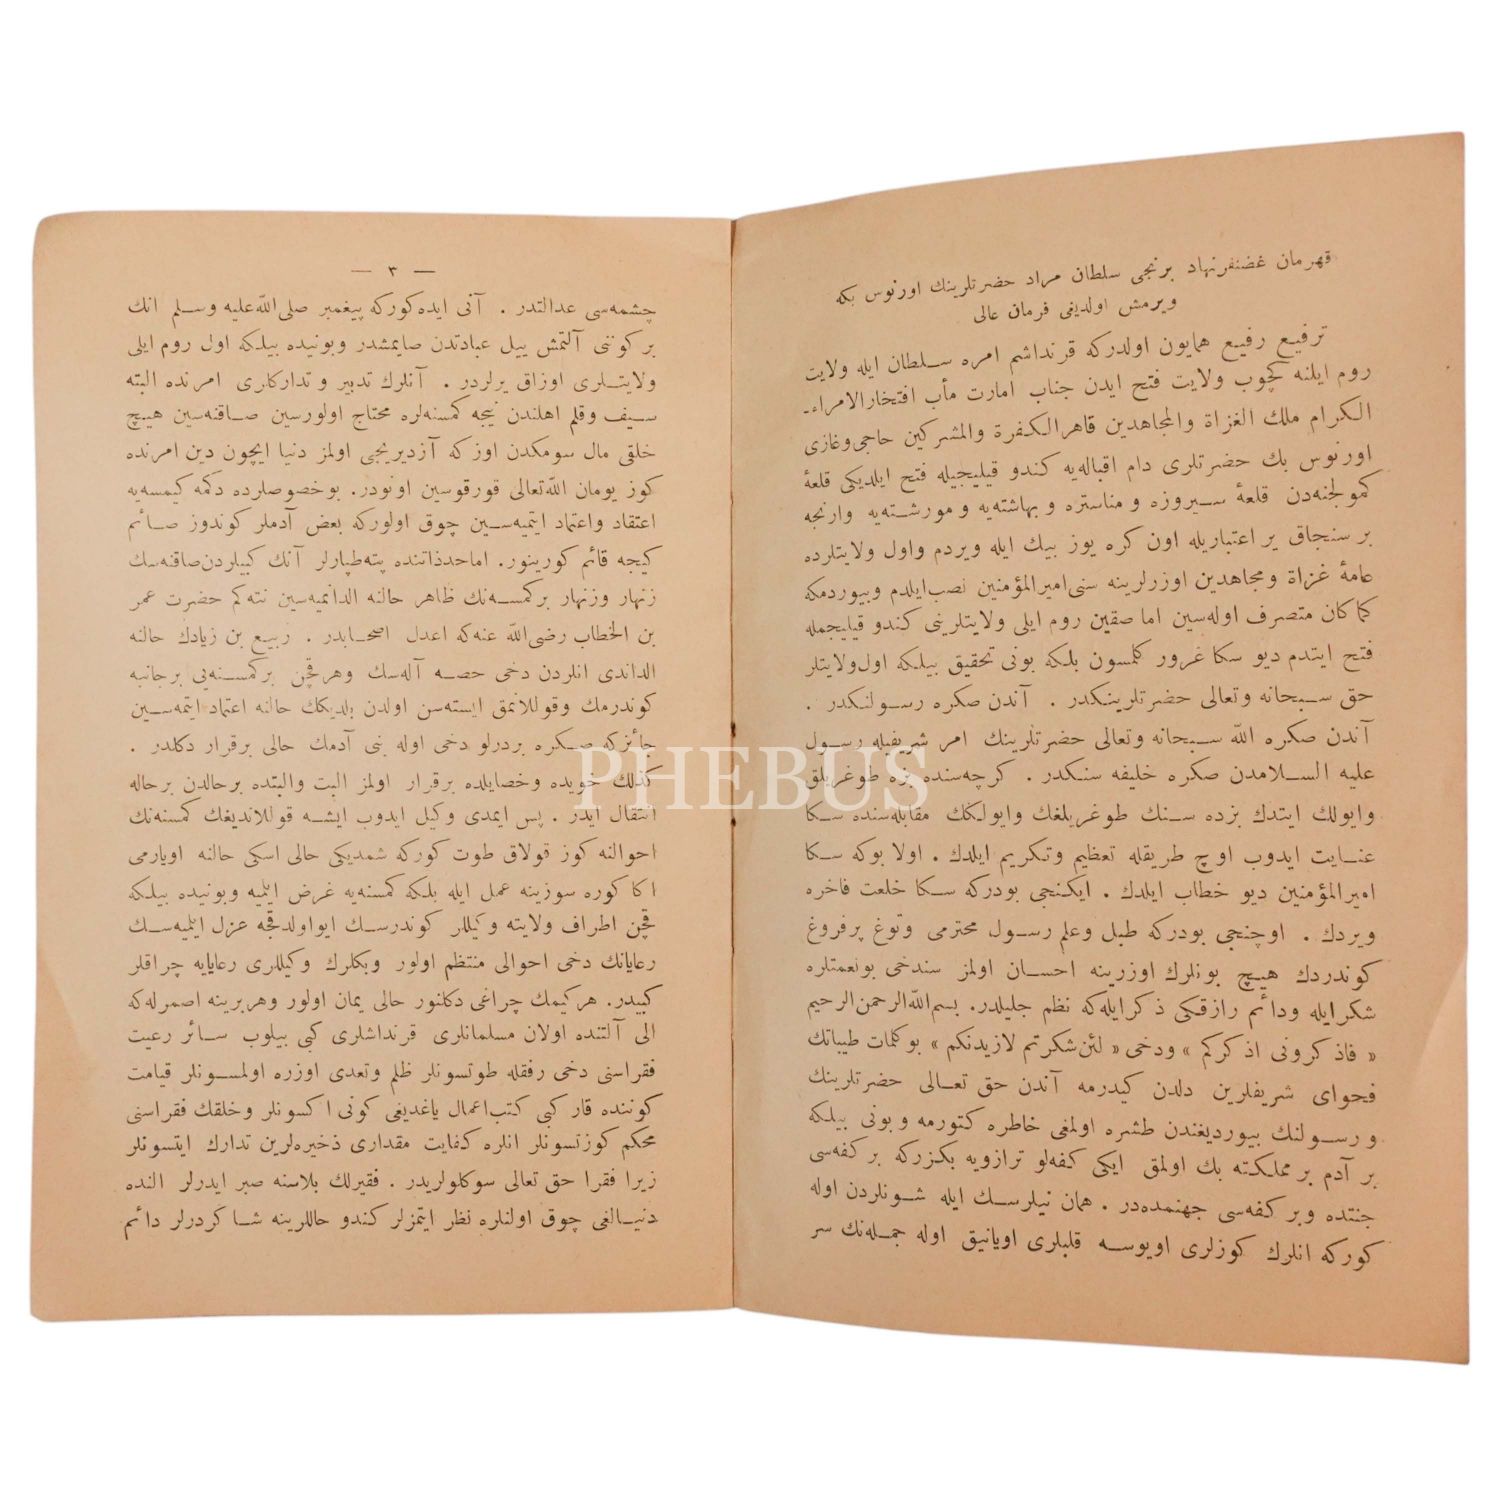 قهرمان غضنفرنهاد برنجی سلطان مراد حضرتلرینك اورنوس بكه
ویرمش اولدیغی فرمان عالی
ترفیع رفیع همایون اولدركه قرنداشم امره سلطان ایله ولایت
روم ایلنه كچوب ولایت فتح ایدن جناب امارت مأب افتخارالامراء
الكرام ملك الغزاة والمجاهدین قاهرالكفرة والمشركین حاجی وغازی
اورنوس بك حضرتلری دام اقباله‌یه كندو قیلیجیله فتح ایلدیكی قلعۀ
كمولجنه‌دن قلعۀ سیروزه و مناستره و بهاشته‌یه و مورشته‌یه وارنجه
بر سنجاق یر اعتباریله اون كره یوز بیك ایله ویردم واول ولایتلرده
عامۀ غزاة ومجاهدین اوزرلرینه سنی امیرالمؤمنین نصب ایلدم وبیوردمكه
كماكان متصرف اوله‌سین اما صقین روم ایلی ولایتلرینی كندو قیلیجمله
فتح ایتدم دیو سكا غرور كلمسون بلكه بونی تحقیق بیلكه اول ولایتلر
حق سبحانه وتعالی حضرتلرینكدر . آندن صكره رسولنكدر .
آندن صكره الله سبحانه وتعالی حضرتلرینك امر شریفیله رسول
علیه السلامدن صكره خلیفه سنكدر . كرچه‌سنده بزه طوغریلق
وایولك ایتدك بزده سنك طوغریلغك وایولكك مقابله‌سنده سكا
عنایت ایدوب اوچ طریقله تعظیم وتكریم ایلدك . اولا بوكه سكا
امیرالمؤمنین دیو خطاب ایلدك . ایكنجی بودركه سكا خلعت فاخره
ویردك . اوچنجی بودركه طبل وعلم رسول محترمی وتوغ پرفروغ
كوندردك هیچ بونلرك اوزرینه احسان اولمز سندخی بونعمتلره
شكرایله ودائم رازقكی ذكرایله‌كه نظم جلیلدر. بسم‌الله الرحمن الرحیم
« فاذكرونی اذكركم » ودخی « لئن شكرتم لازیدنكم » بوكلمات طیباتك
فحوای شریفلرین دلدن كیدرمه آندن حق تعالی حضرتلرینك
و رسولنك بیوردیغندن طشره اولمغی خاطره كتورمه و بونی بیلكه
بر آدم بر مملكته بك اولمق ایكی كفه‌لو ترازویه بكزركه بر كفه‌سی
جنتده وبر كفه‌سی جهنمده‌در . همان نیلرسك ایله شونلردن اوله
كوركه انلرك كوزلری اویوسه قلبلری اویانیق اوله جمله‌نك سر
— ٣ —
چشمه‌سی عدالتدر . آنی ایده‌كوركه پیغمبر صلی الله علیه وسلم انك
بر كوننی آلتمش ییل عبادتدن صایمشدر وبونیده بیلكه اول روم ایلی
ولایتلری اوزاق یرلردر . آنلرك تدبیر و تداركاری امرنده البته
سیف وقلم اهلندن نیجه كمسنه‌لره محتاج اولورسین صاقنه‌سین هیچ
خلقی مال سومكدن اوزكه آزدیریجی اولمز دنیا ایچون دین امرنده
كوز یومان الله تعالی قورقوسین اونودر. بوخصوصلرده دكمه كیمسه‌یه
اعتقاد واعتماد ایتمیه‌سین چوق اولوركه بعض آدملر كوندوز صائم
كیجه قائم كورینور. اما حدذاتنده پته طپارلر آنك كبیلردن صاقنه‌سك
زنهار وزنهار بركمسه‌نك ظاهر حالنه الدانمیه‌سین نته‌كم حضرت عمر
بن الخطاب رضی الله عنه‌كه اعدل اصحابدر . ربیع بن زیادك حالنه
الداندی انلردن دخی حصه آله‌سك وهرقچن بركمسنه‌یی برجانبه
كوندرمك وقوللانمق ایسته‌سن اولدن بلدیكك حالنه اعتماد ایتمه‌سین
جائزكه صكره بردرلو دخی اوله بنی آدمك حالی برقرار دكلدر .
كذلك خویده وخصایلده برقرار اولمز البت والبتده برحالدن برحاله
انتقال ایدر . پس ایمدی وكیل ایدوب ایشه قوللاندیغك كمسنه‌نك
احوالنه كوز قولاق طوت كوركه شمدیكی حالی اسكی حالنه اویارمی
اكا كوره سوزینه عمل ایله بلكه كمسنه‌یه غرض ایلمیه وبونیده بیلكه
قچن اطراف ولایته وكیللر كوندرسك ایواولدقجه عزل ایلمیه‌سك
رعایانك دخی احوالی منتظم اولور وبكلرك وكیللری رعایایه چراقلر
كبیدر. هركیمك چراغی دكلنور حالی یمان اولور وهربرینه اصمرله‌كه
الی آلتنده اولان مسلمانلری قرنداشلری كبی بیلوب سائر رعیت
فقراسنی دخی رفقله طوتسونلر ظلم وتعدی اوزره اولمسونلر قیامت
كوننده قار كبی كتب اعمال یاغدیغی كونی اكسونلر وخلقك فقراسنی
محكم كوزتسونلر انلره كفایت مقداری ذخیره‌لرین تدارك ایتسونلر
زیرا فقرا حق تعالی سوكلولریدر . فقیرلك بلاسنه صبر ایدرلر النده
دنیالغی چوق اولنلره نظر ایتمزلر كندو حاللرینه شاكردرلر دائم
PHEBUS